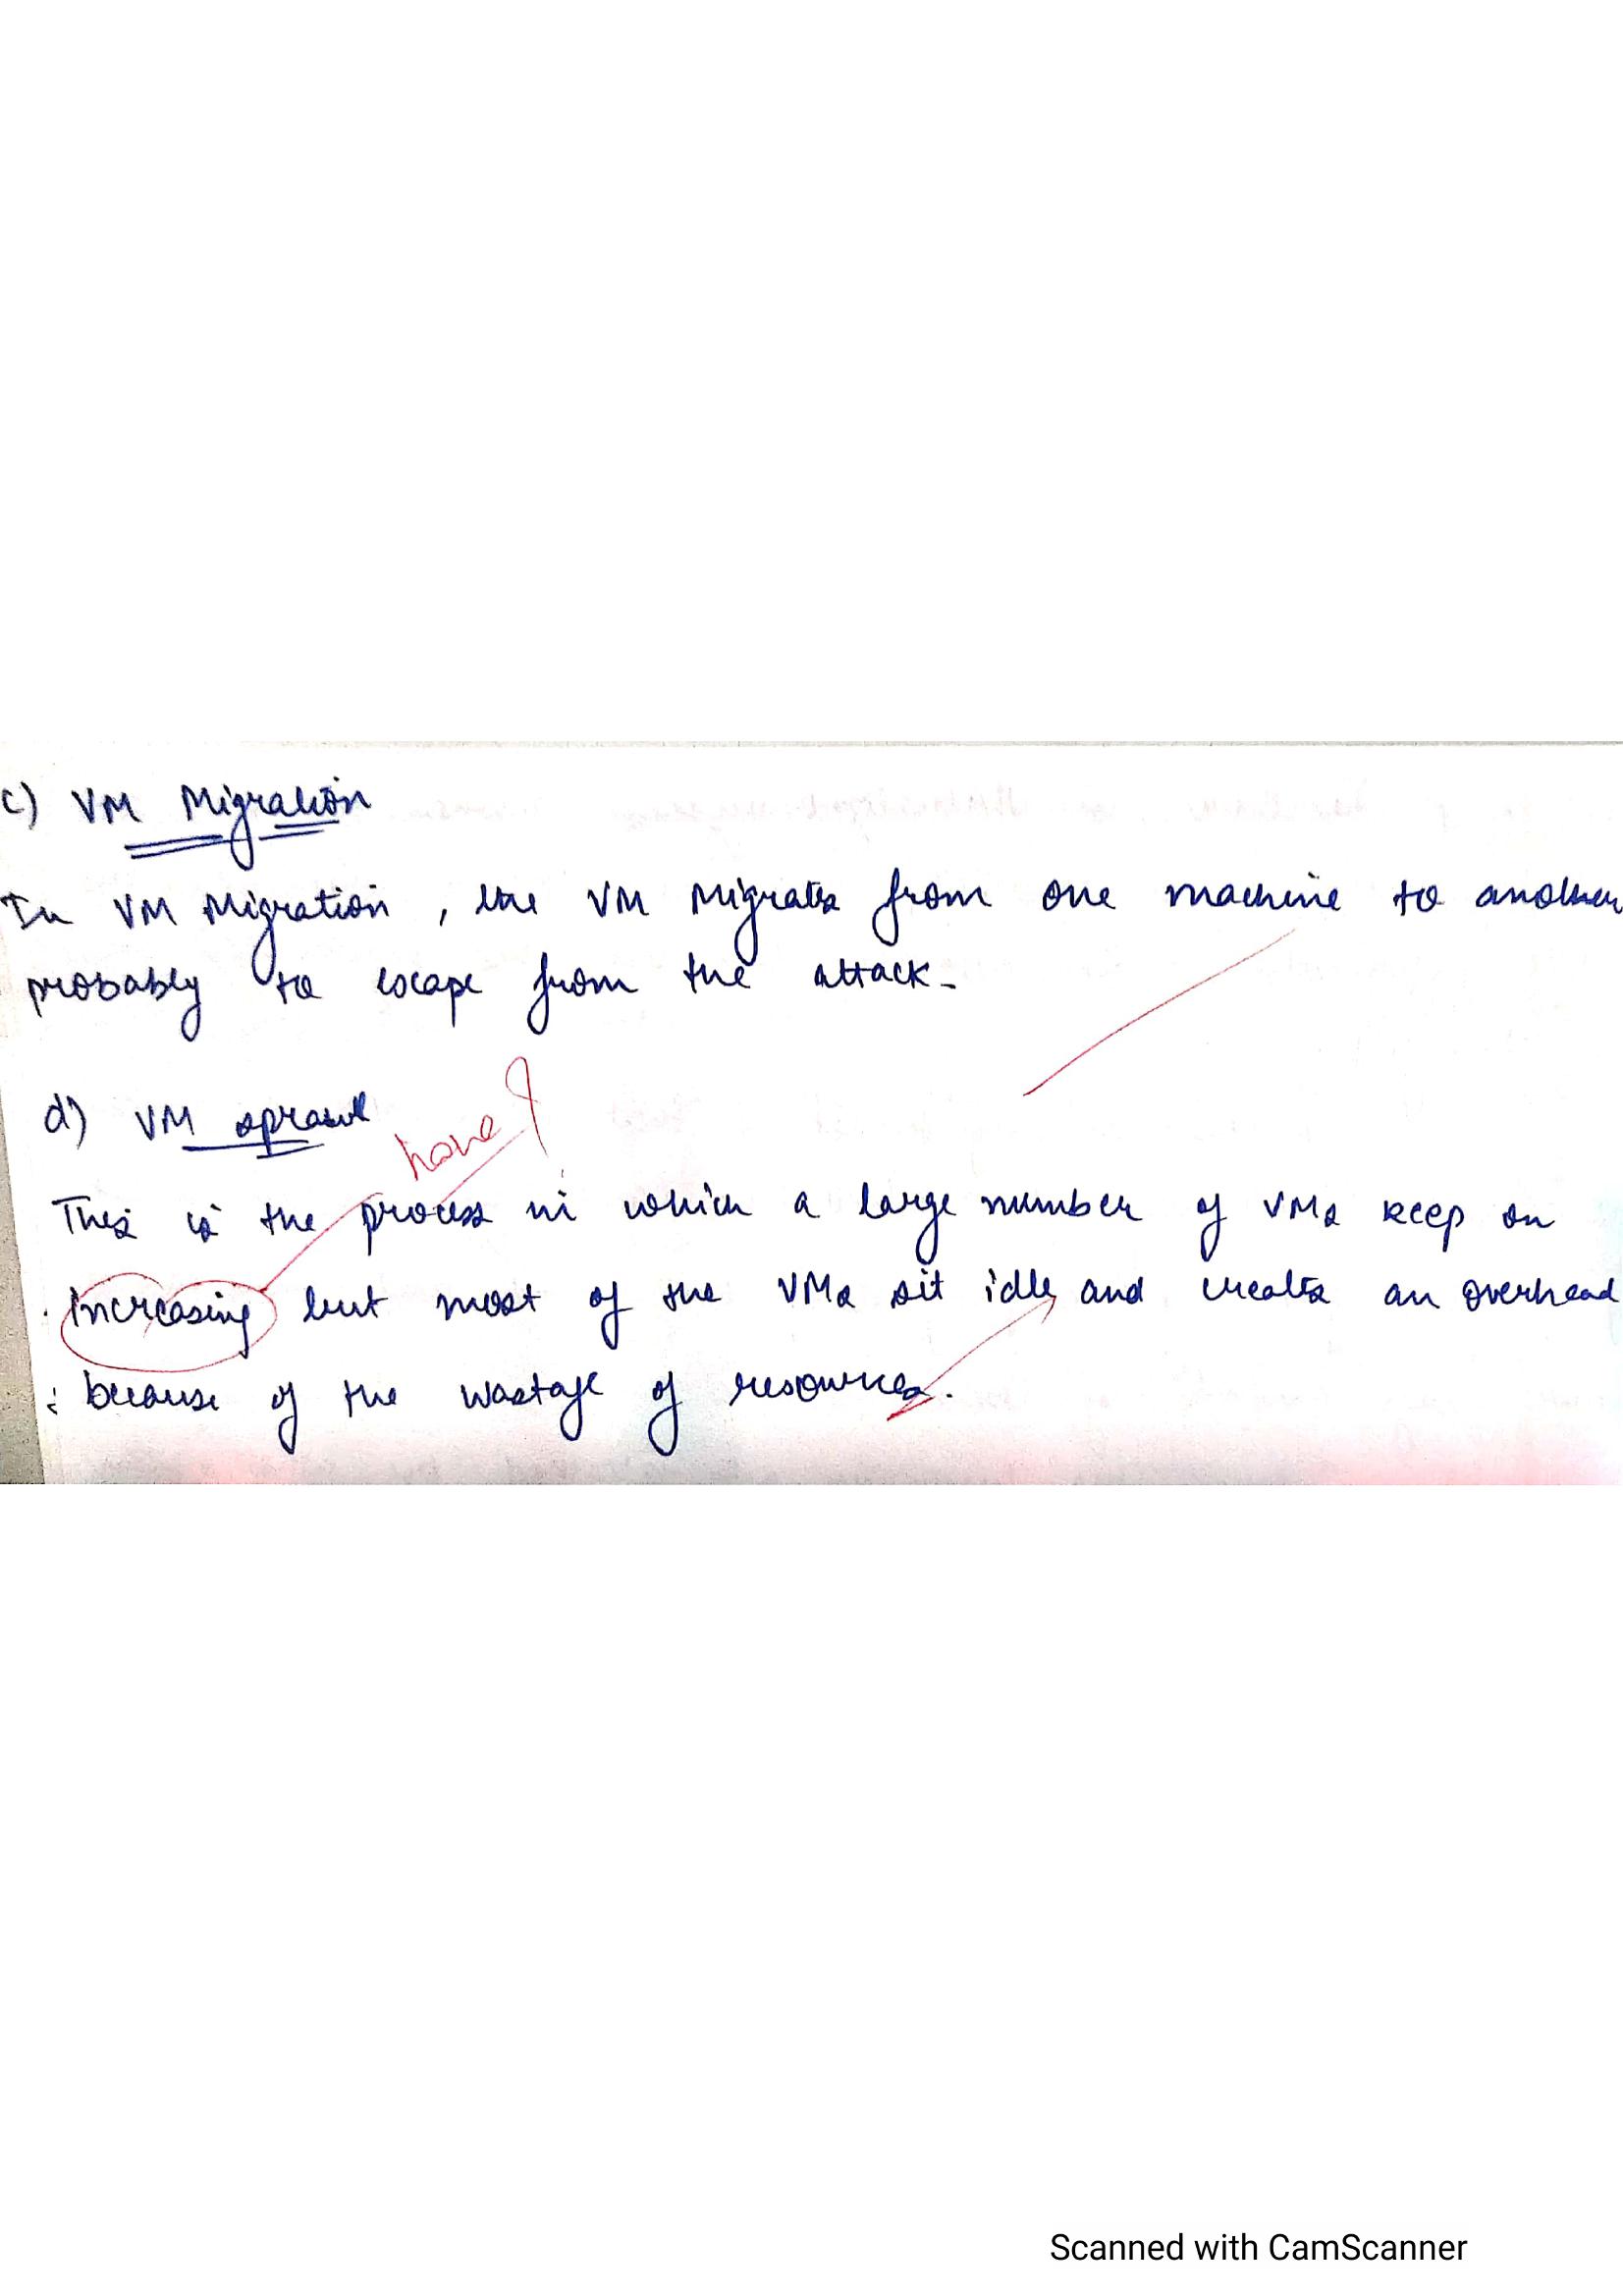 c) VM Migration
In VM Migration, the VM Migrates from one machine to another
probably to escape from the attack.
d) VM sprawl
have ?
This is the process in which a large number of VMs keep on
increasing but most of the VMs sit idle and creates an overhead
because of the wastage of resources.
Scanned with CamScanner